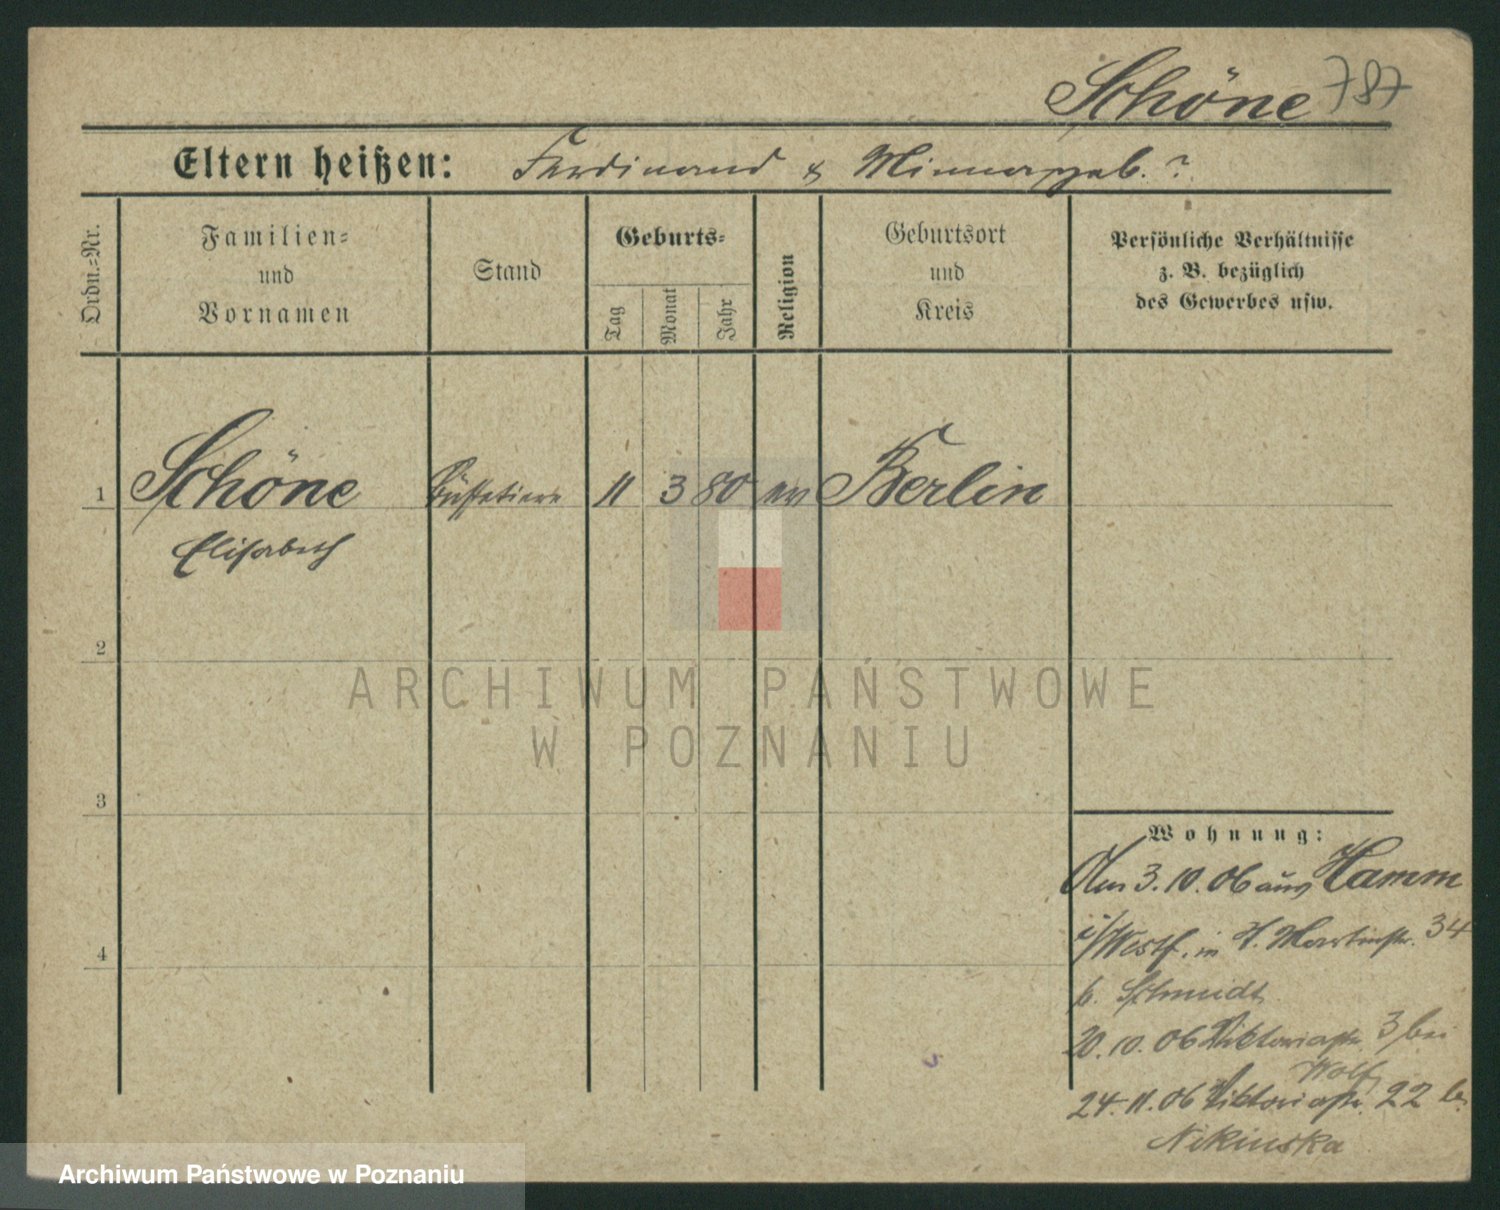 Schöne 787
Eltern heißen: Ferdinand & Minna geb. ?
Ordn.=Nr.
Familien=
und
Vornamen
Stand
Geburts=
Tag
Monat
Jahr
Religion
Geburtsort
und
Kreis
Persönliche Verhältnisse
z. B. bezüglich
des Gewerbes usw.
1 Schöne Büffetiere 11 3 80 ev Berlin
Elisabeth
2
3
4
ARCHIWUM PAŃSTWOWE
W POZNANIU
Wohnung:
Am 3.10.06 aus Hamm
i/Westf. in St. Martinstr. 34
b. Schmidt
20.10.06 Viktoriastr. 3 bei
Wolf
24.11.06 Viktoriastr. 22 b.
Nikinska
Archiwum Państwowe w Poznaniu